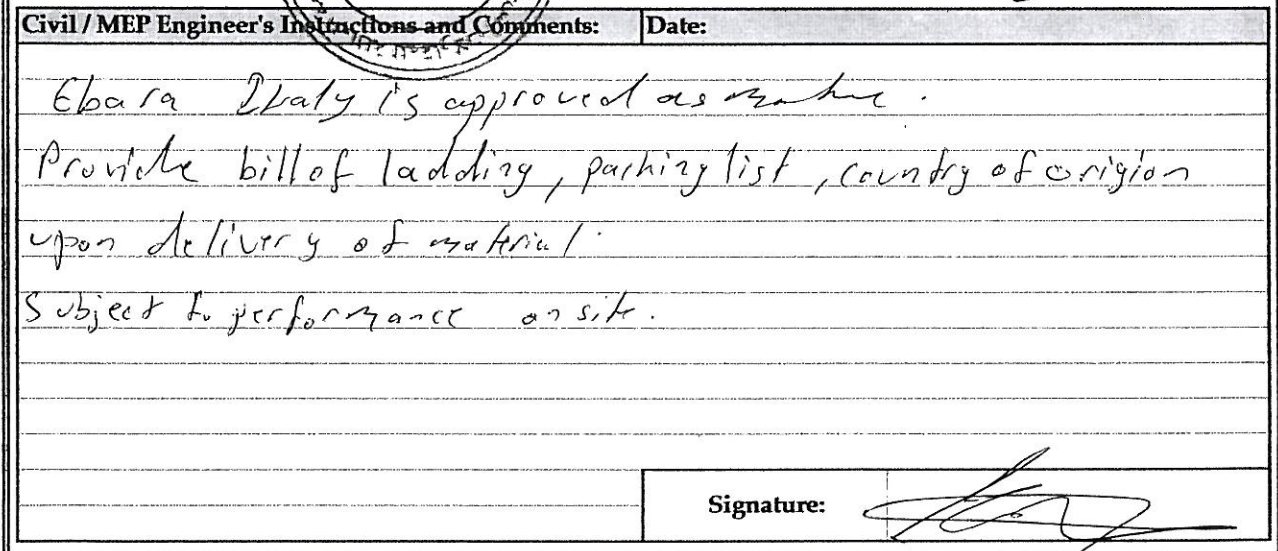 Civil / MEP Engineer's Instructions and Comments: Date:
Ebara Italy is approved as make.
Provide bill of ladding, packing list, country of origion
upon delivery of material.
Subject to performance on site.
Signature: